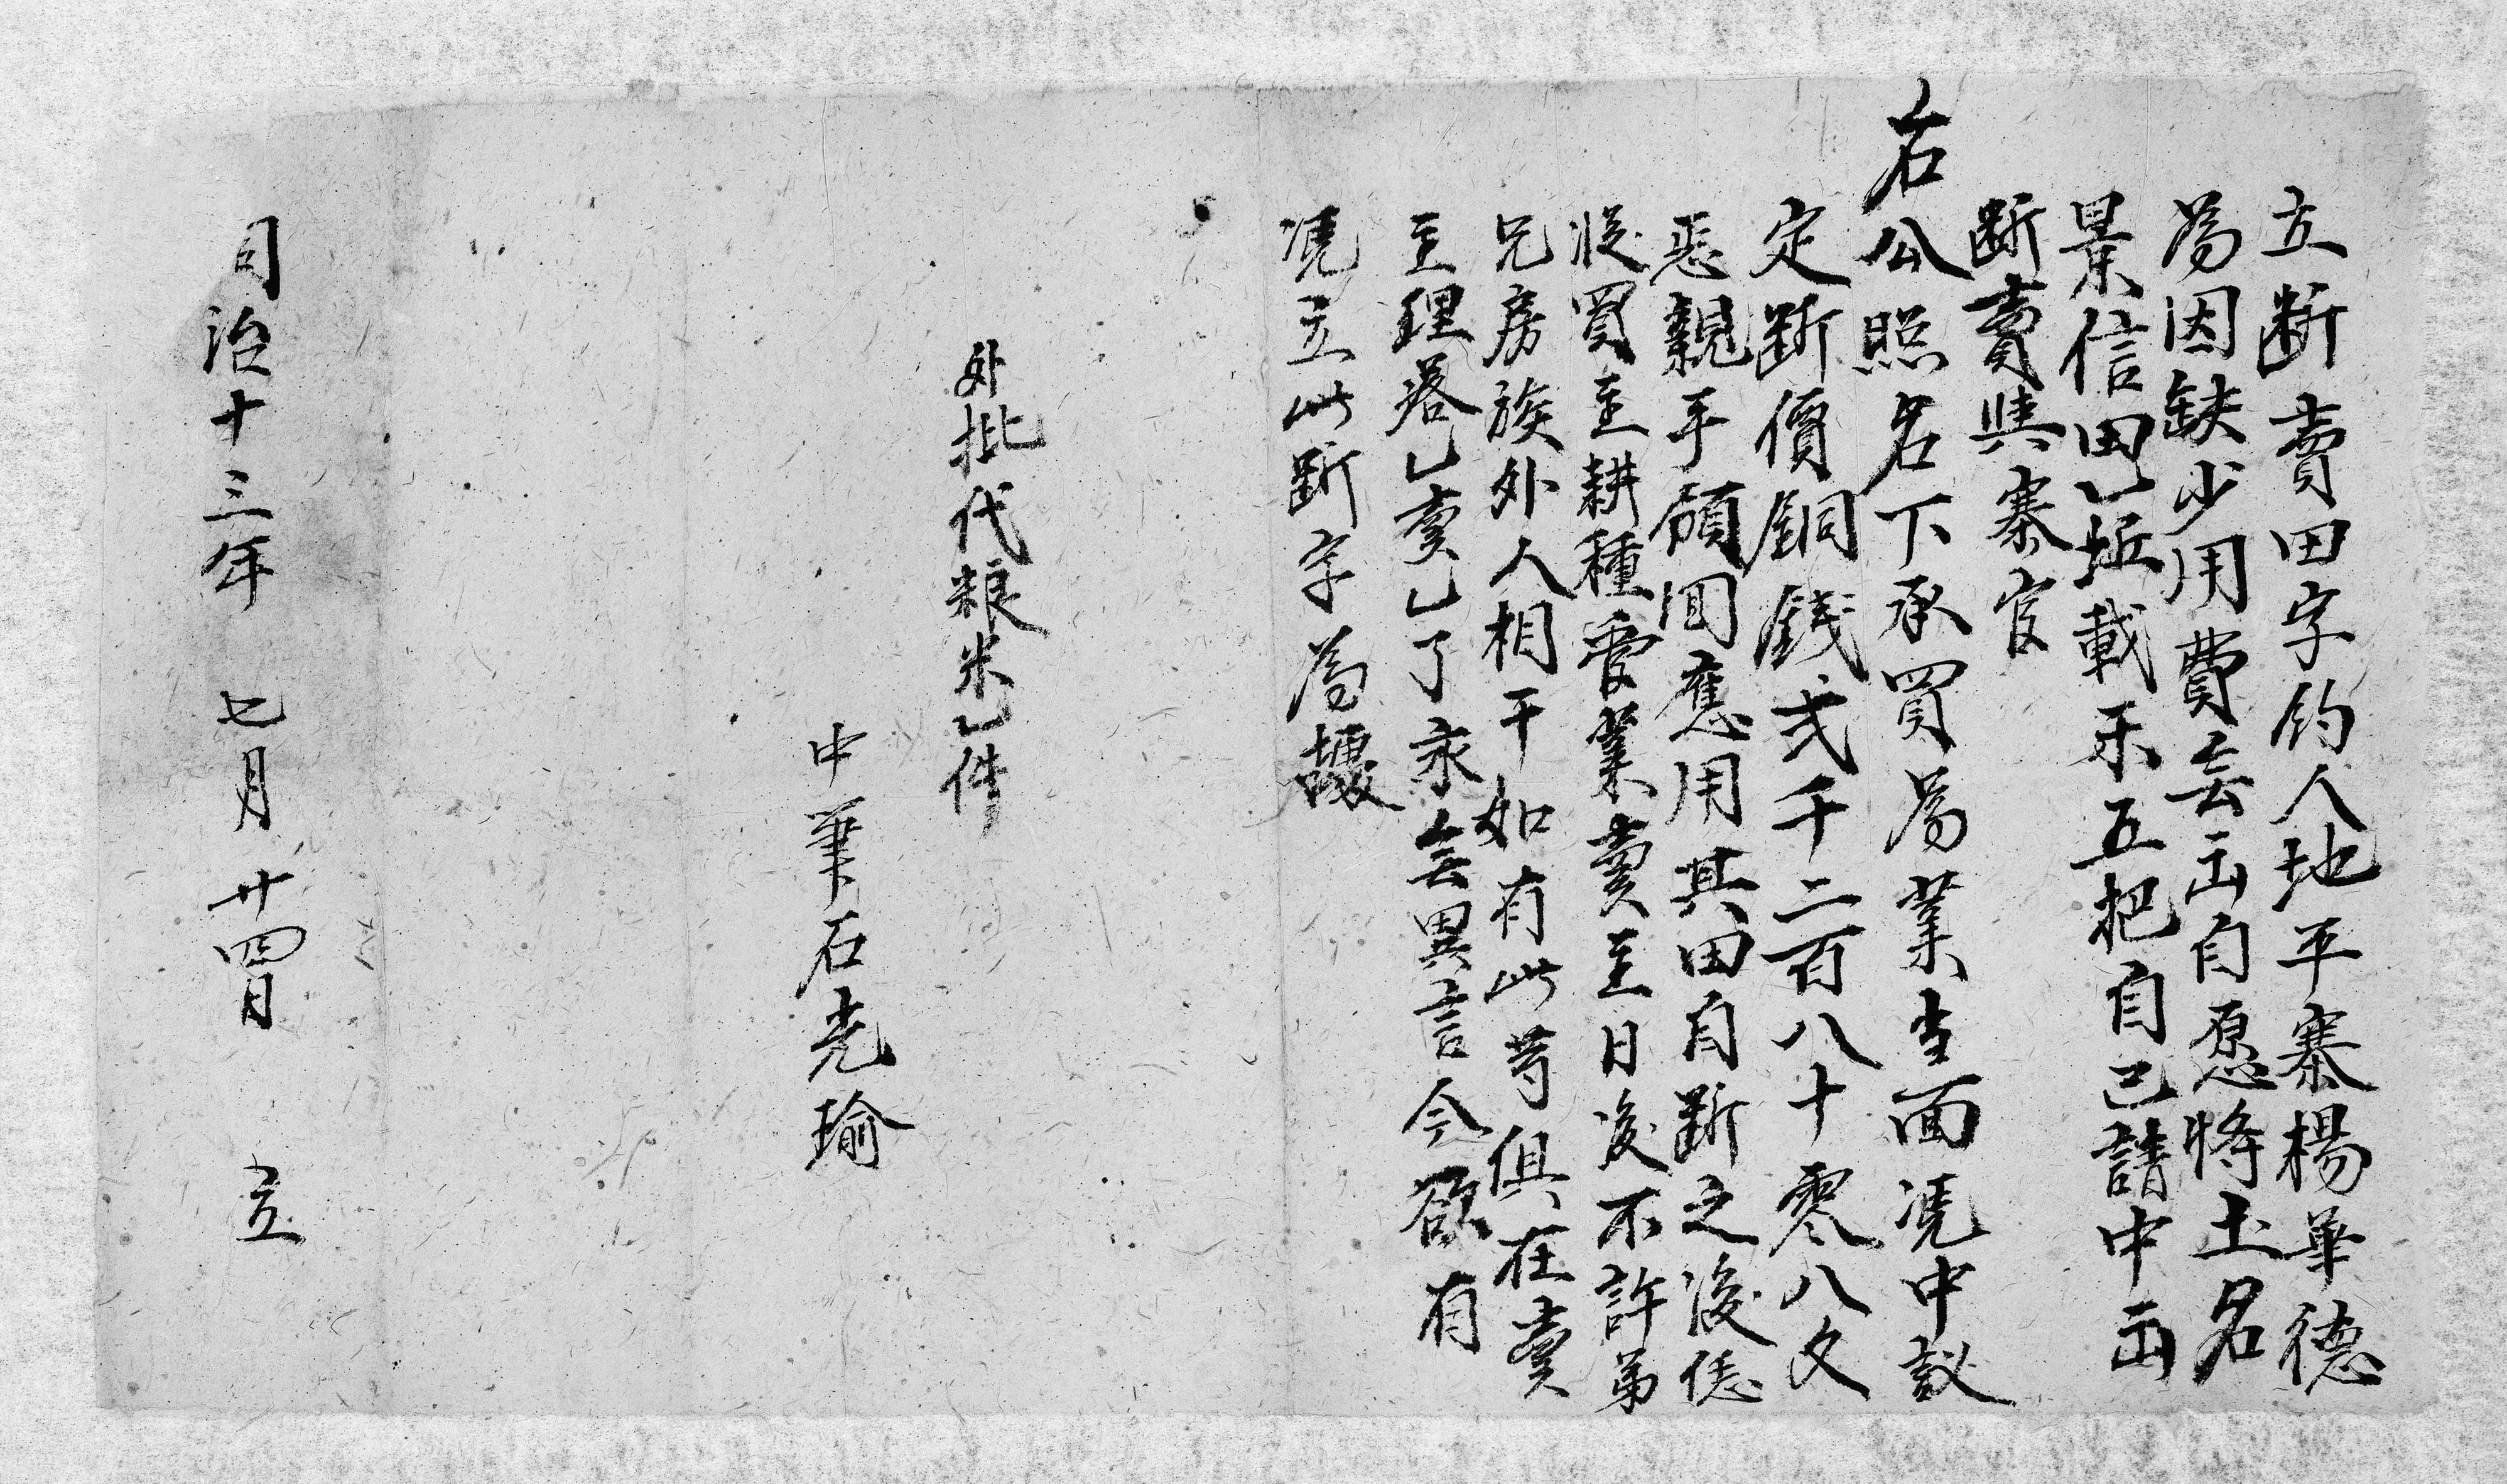 立断賣田字約人地平寨楊華德
為因缺少用費無出自愿將土名
景信田乙坵載禾五把自己請中出
断賣與寨官
石公照名下承買為業當面凴中議
定断價銅錢弍千二百八十零八文
悉親手領囬應用其田自断之後恁
從買主耕種管業賣主日後不許弟
兄房族外人相干如有此等俱在賣
主理落乙賣乙了永無異言今欲有
凴立此断字為據
外批代粮米乙件
中筆石光瑜
同治十三年 七月 廿四日 立